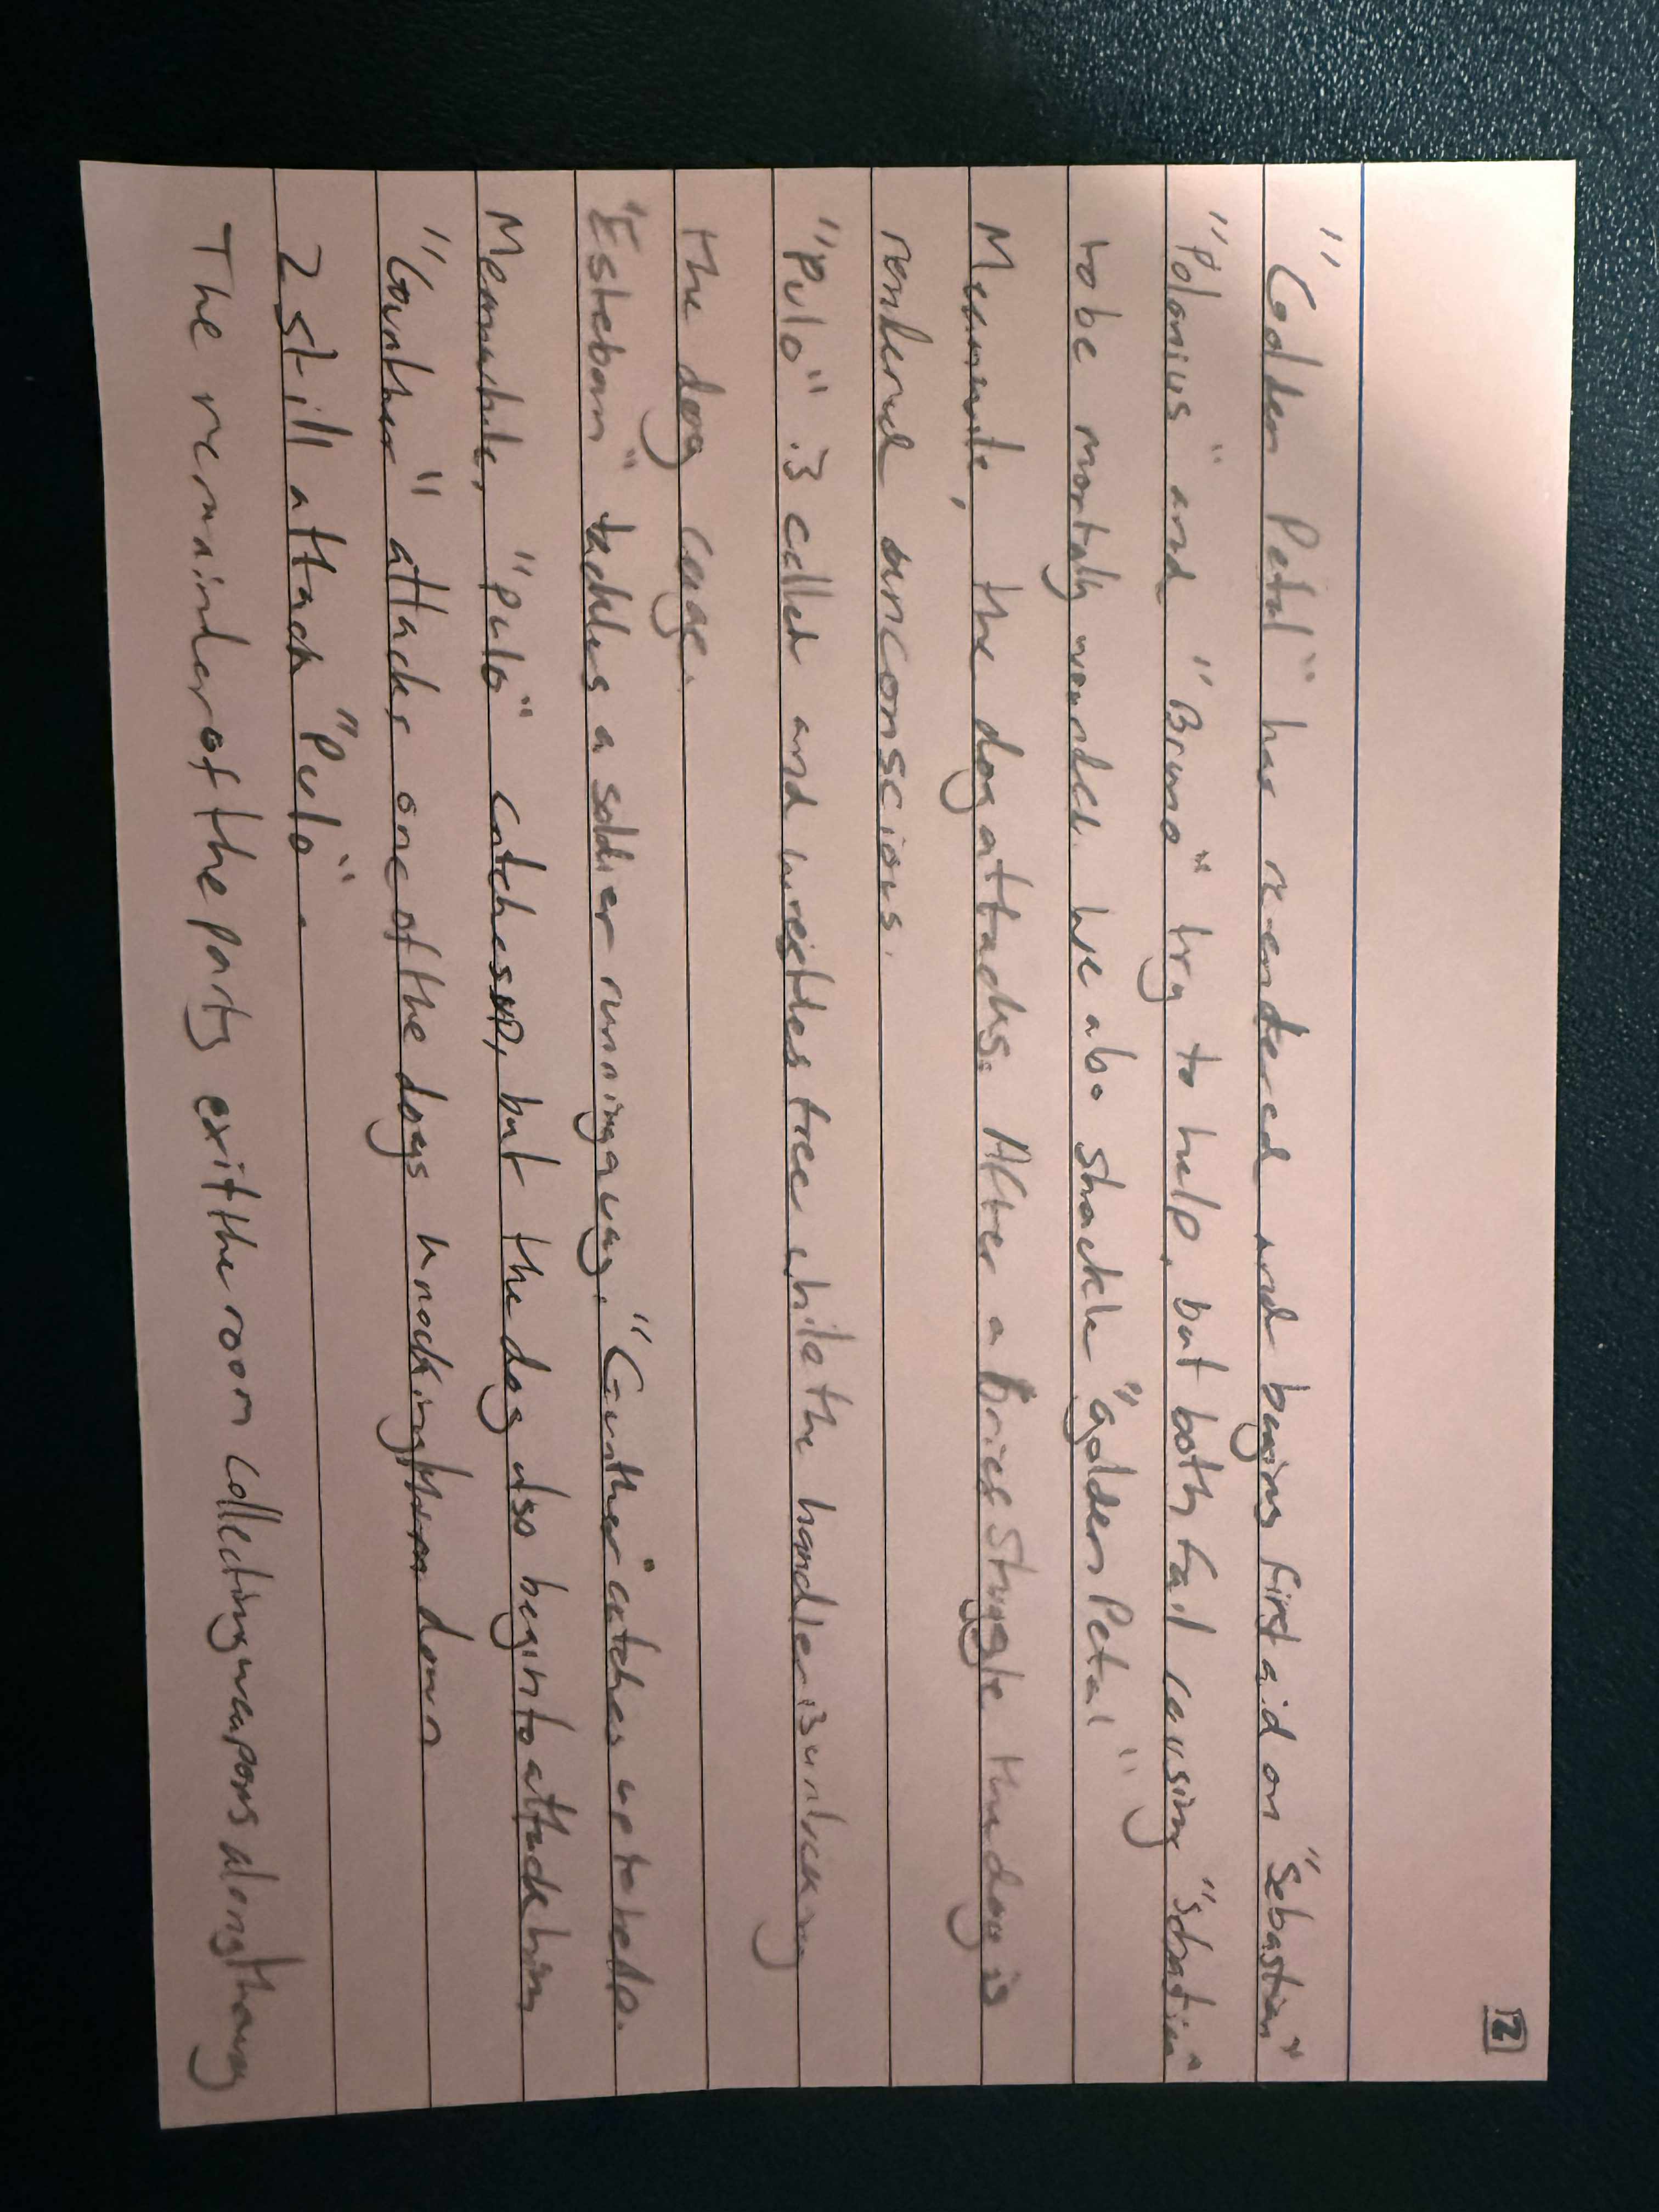 12
"Golden Petal" has re-endered and begins first aid on "Sebastian"
"Polonius" and "Bruno" try to help, but both fail causing "Sebastian"
to be mortally wounded. We also shackle "golden Petal"
Meanwhile, the dog attacks. After a brief struggle the dog is
renderd unconscious.
"Pulo" is called and wrestles free while the handler is unlocking
the dog cage.
"Esteban" tackles a soldier running away. "Gunther" catches up to help.
Meanwhile, "Pulo" catches up, but the dog also begin to attack him
"Gunther" attacks one of the dogs knocking them down
2 still attack "Pulo".
The remainder of the party exit the room collecting weapons along the way